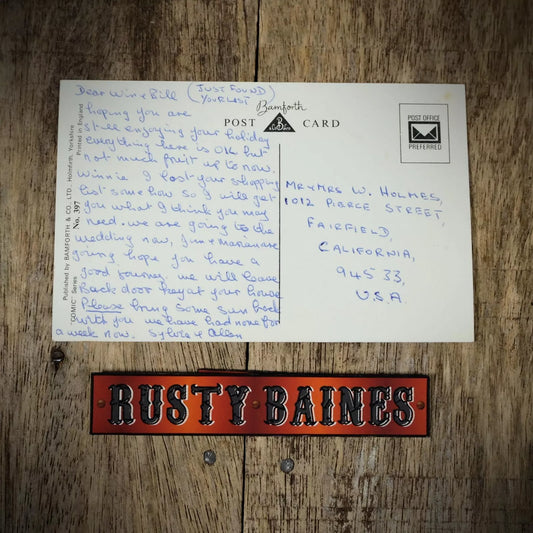 Dear Win & Bill (JUST FOUND
YOUR LIST)
hoping you are
still enjoying your holiday
everything here is OK but
not much fruit up to now.
Winnie I lost your shopping
list some how so I will get
you what I think you may
need. we are going to the
wedding now, Jim & Marian are
going hope you have a
good journey we will leave
Back door key at your house
Please bring some sun back
with you we have had none for
a week now. Sylvia & Allen
Bamforth
POST CARD
POST OFFICE
PREFERRED
MR & MRS W. HOLMES,
1012 PIERCE STREET,
FAIRFIELD,
CALIFORNIA,
94533,
U.S.A
Published by BAMFORTH & CO. LTD., Holmfirth, Yorkshire
"COMIC" Series No. 397 Printed in England
RUSTY BAINES